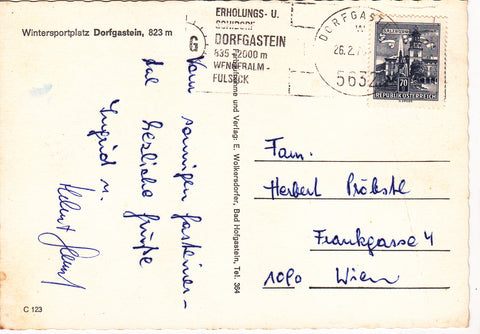 Wintersportplatz Dorfgastein, 823 m
ERHOLUNGS- U.
DORFGASTEIN
835-2000 m
WENGERALM-
FULSECK
G
DORFGAST
26.2.7
5632
SALZBURG
S 70
REPUBLIK ÖSTERREICH
Vom sonnigen Gasteiner-
tal herzliche Grüße
Ingrid u.
Helmut
und Verlag: E. Wolkersdorfer, Bad Hofgastein, Tel. 364
Fam.
Herbert Pröbstl
Frankgasse 4
1090 Wien
C 123